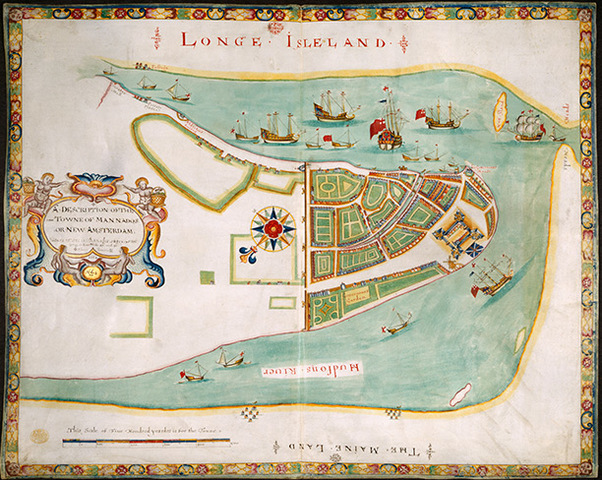 LONGE ISLELAND
A DESCRIPTION OF THE
TOWNE OF MANNADOS
OR NEW AMSTERDAM
Hudsons River
This Scale of Five Hundred yardes is for the Towne
THE MAINE LAND